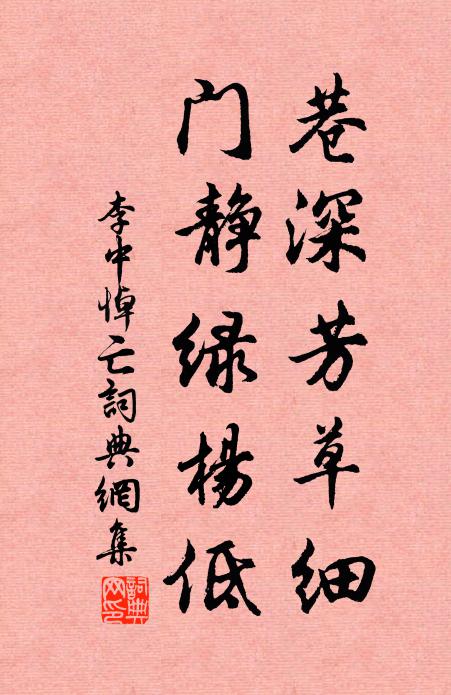 巷深芳草细
门静绿杨低
李中悼亡词典網集
詞典網印